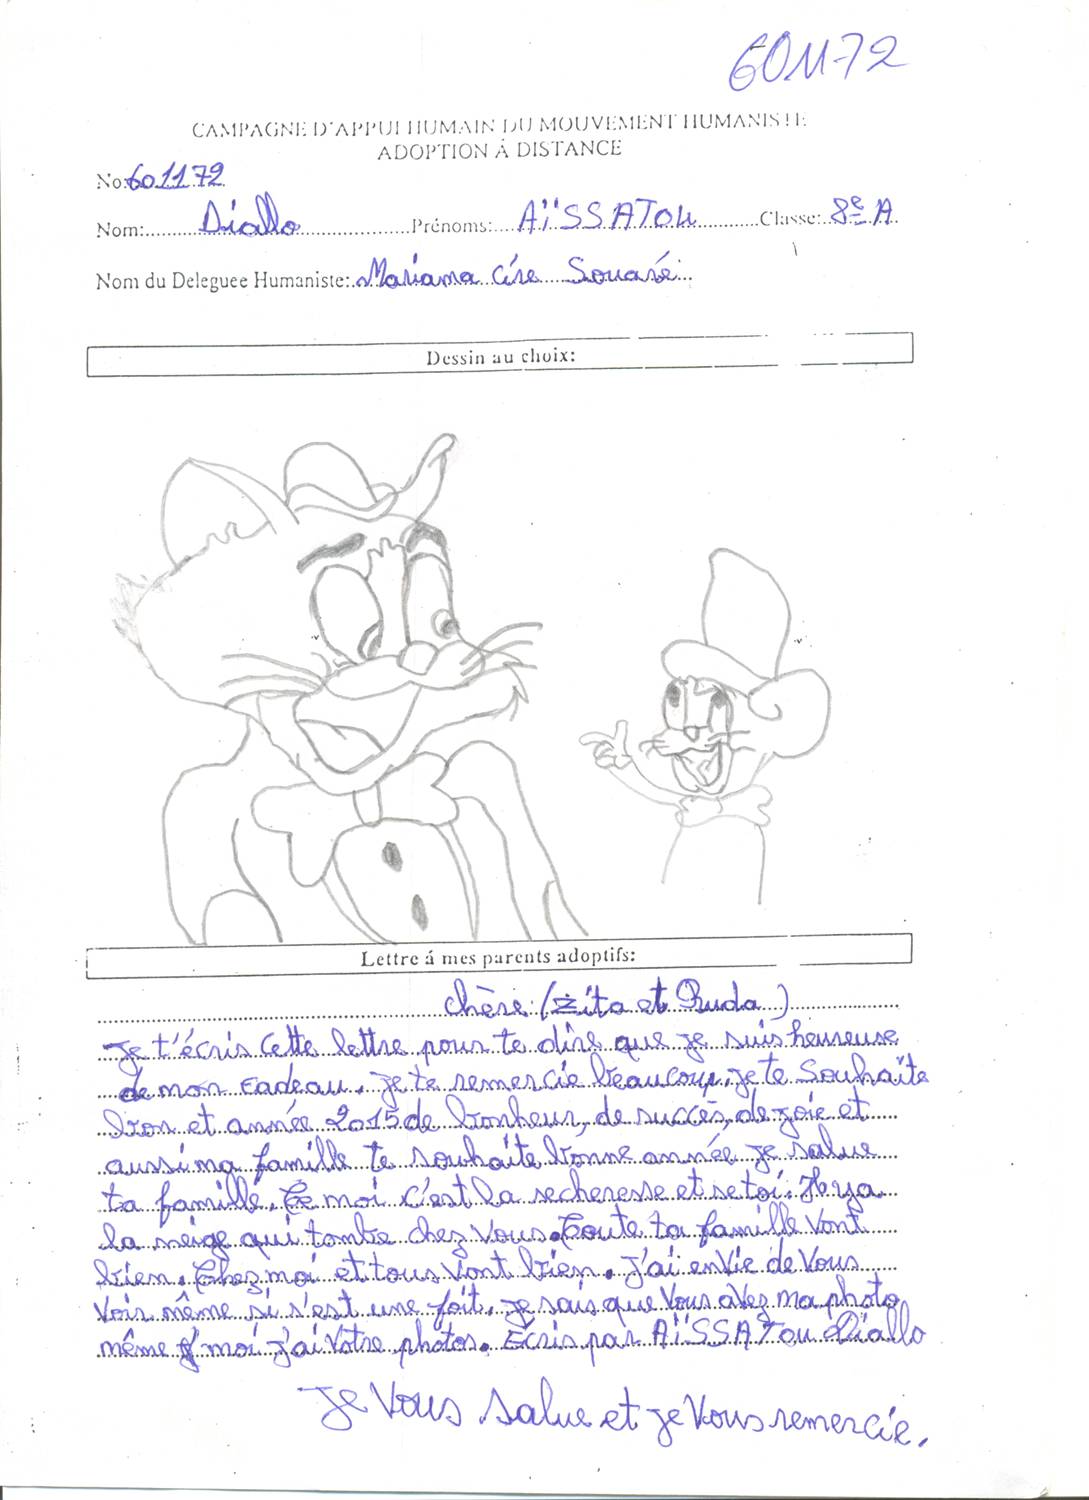 601172
CAMPAGNE D'APPUI HUMAIN DU MOUVEMENT HUMANISTE
ADOPTION À DISTANCE
No: 601172
Nom: Diallo Prénoms: AÏSSATOU Classe: 8e A
Nom du Deleguee Humaniste: Mariama Cire Souaré
Dessin au choix:
Lettre á mes parents adoptifs:
chère (Zita et Ruda)
Je t'écris cette lettre pour te dire que je suis heureuse
de mon cadeau. Je te remercie beaucoup. Je te souhaite
bon et année 2015 de bonheur, de succès, de joie et
aussi ma famille te souhaite bonne année je salue
ta famille. moi c'est la secheresse et se toi. Il ya
la neige qui tombe chez vous. Toute ta famille vont
bien. Chez moi et tous vont bien. J'ai envie de vous
voir même si s'est une foit. je sais que vous avez ma photo
même moi j'ai votre photos. Ecris par AÏSSATOU Diallo
Je vous salue et je vous remercie.